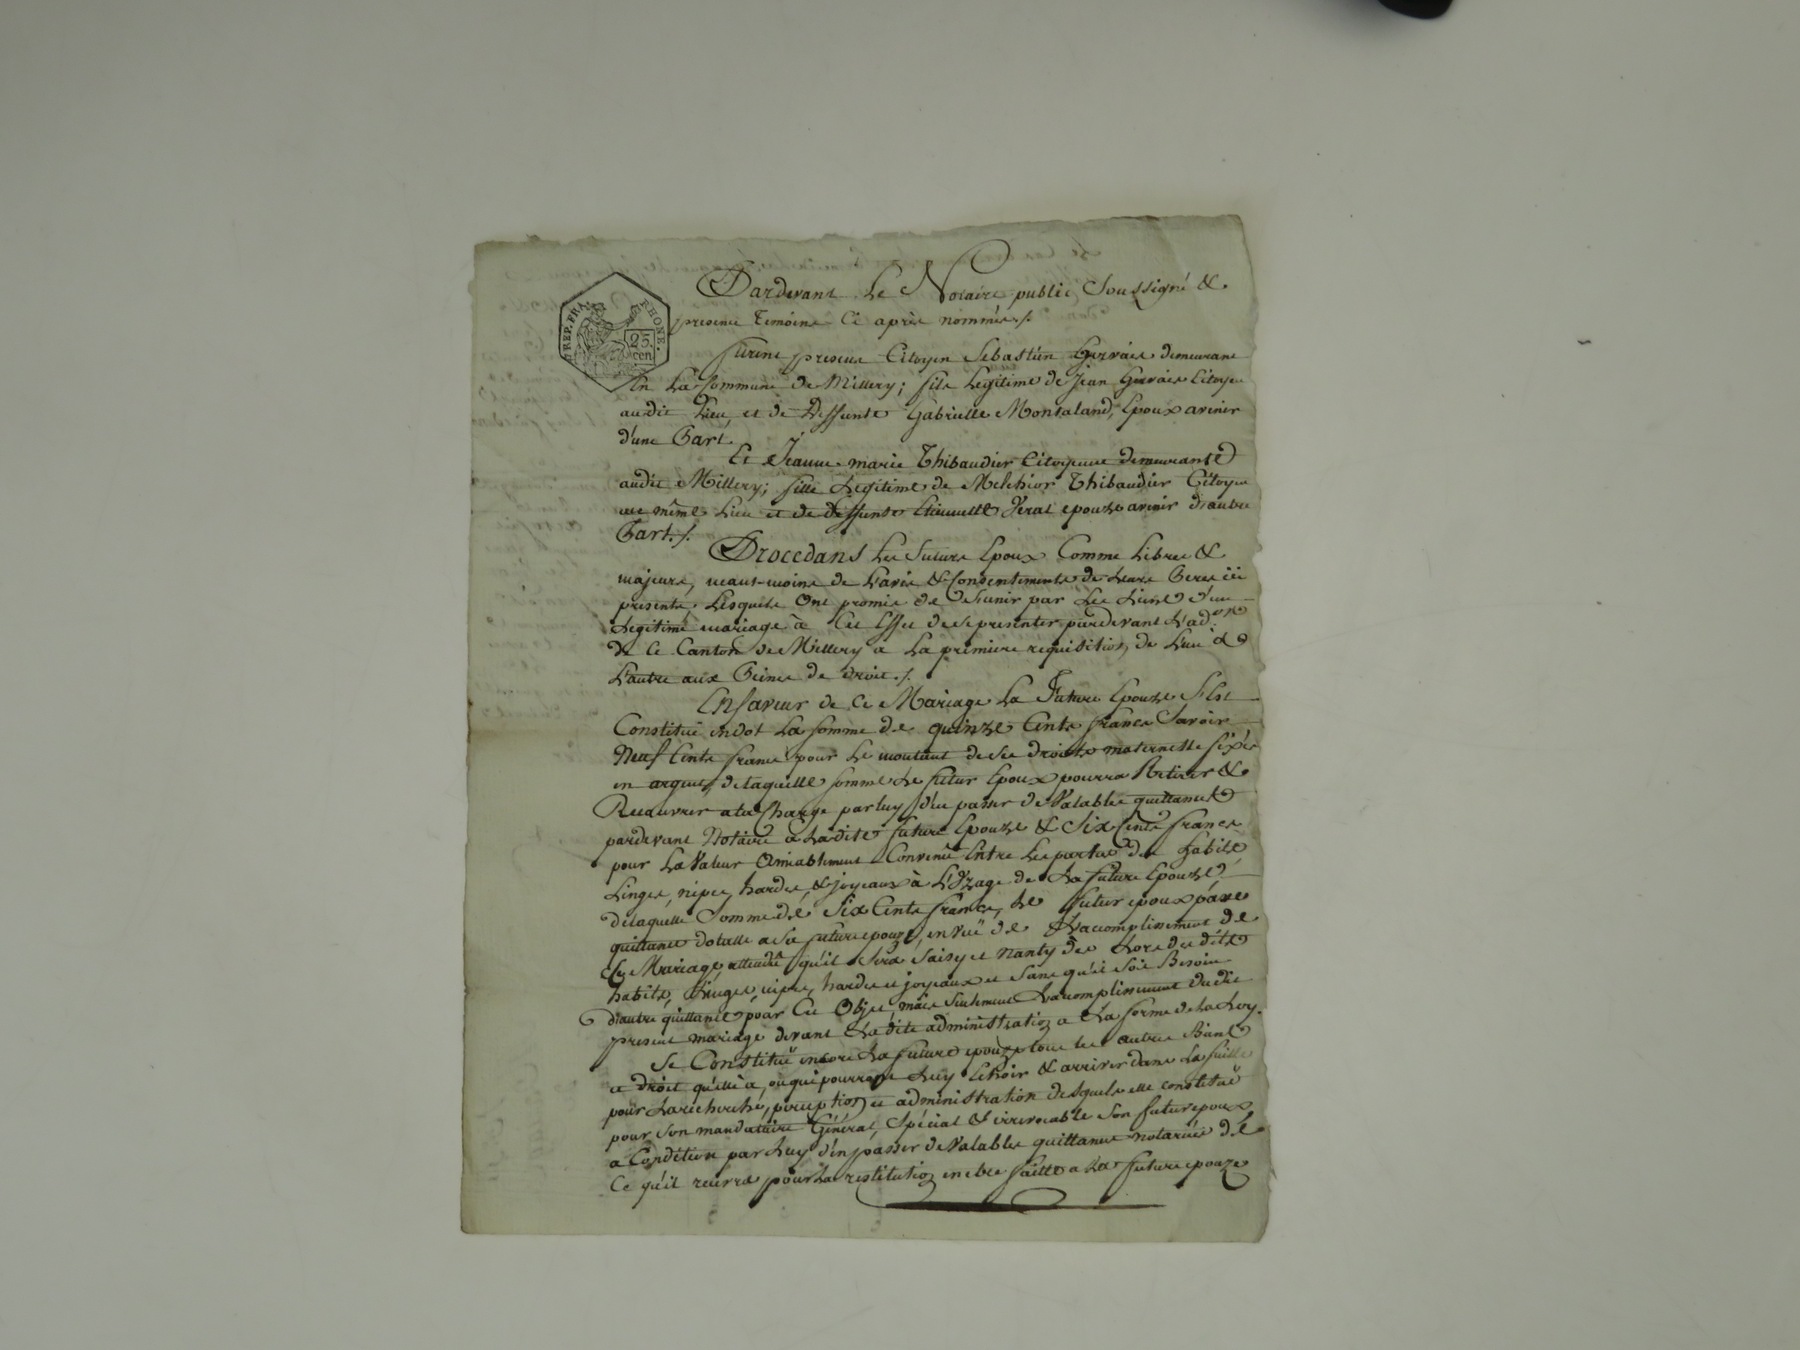 REP. FRA. RHONE.
25.
cen.
Pardevant Le Notaire public Soussigné &
presence Temoins Ci après nommés ./.
furent presens Citoyen Sebastien Gervais demeurant
En La Commune de Millery; fils Légitime de Jean Gervais Citoyen
audit Lieu, et de Deffunte Gabrielle Montaland, Epoux avenir
d'une Part
Et Jeanne marie Thibaudier Citoyenne demeurante
audit Millery; fille Legitime de Melchior Thibaudier Citoyen
au même Lieu et de deffunte Etiennette Verat epouze avenir d'autre
Part ./.
Procedans Les futurs Epoux Comme Libres &
majeurs, neant-moins de L'avis & Consentements de Leurs Peres ici
presents, Lesquels Ont promis de S'unir par Les Liens d'un
Legitime mariage à Cet Effet de se presenter pardevant L'ad.on
de Ce Canton de Millery a La premiere requisition, de L'un à
L'autre aux Peines de droit ./.
En faveur de Ce Mariage La Future Epouze S'est
Constituë en dot La Somme de quinze Cents francs Savoir
Neuf Cents francs pour Le montant de Ses droits maternels fixés
en argent, de laquelle somme Le futur Epoux pourra Retirer &
Recouvrer a la Charge par luy d'en passer de Valables quittances
pardevant Notaire a Ladite future Epouze & Six Cents francs
pour La Valeur Amiablement Convenuë Entre Les parties des habits,
Linges, nipes, hardes, & joyeaux à L'Uzage de La future Epouze
de laquelle Somme de Six Cents francs, Le futur epoux passe
quittance dotalle a Sa future epouze, en vuë de L'accomplissement de
Ce Mariage attendu qu'il Sera Saisy et Nanty dès Lors desdits
habits, Linges, nipes, hardes et joyeaux et Sans qu'il Soit Besoin
d'autre quittance pour Cet Objet, mais Seulement L'accomplissement dudit
present mariage devant La dite administration a La forme de la Loy.
Se Constituë encore La future epouze tous les autres Biens
et droit qu'elle à, ou qui pourront Luy Echoir & arriver dans La Suitte
pour La recherche, perception et administration desquels elle constituë
pour Son mandataire Général, Spécial & irrevocable Son futur epoux
a Condition par Luy d'en passer de Valables quittances notariées de
Ce qu'il recevra pour La restitution en etre faitte a La future epouze